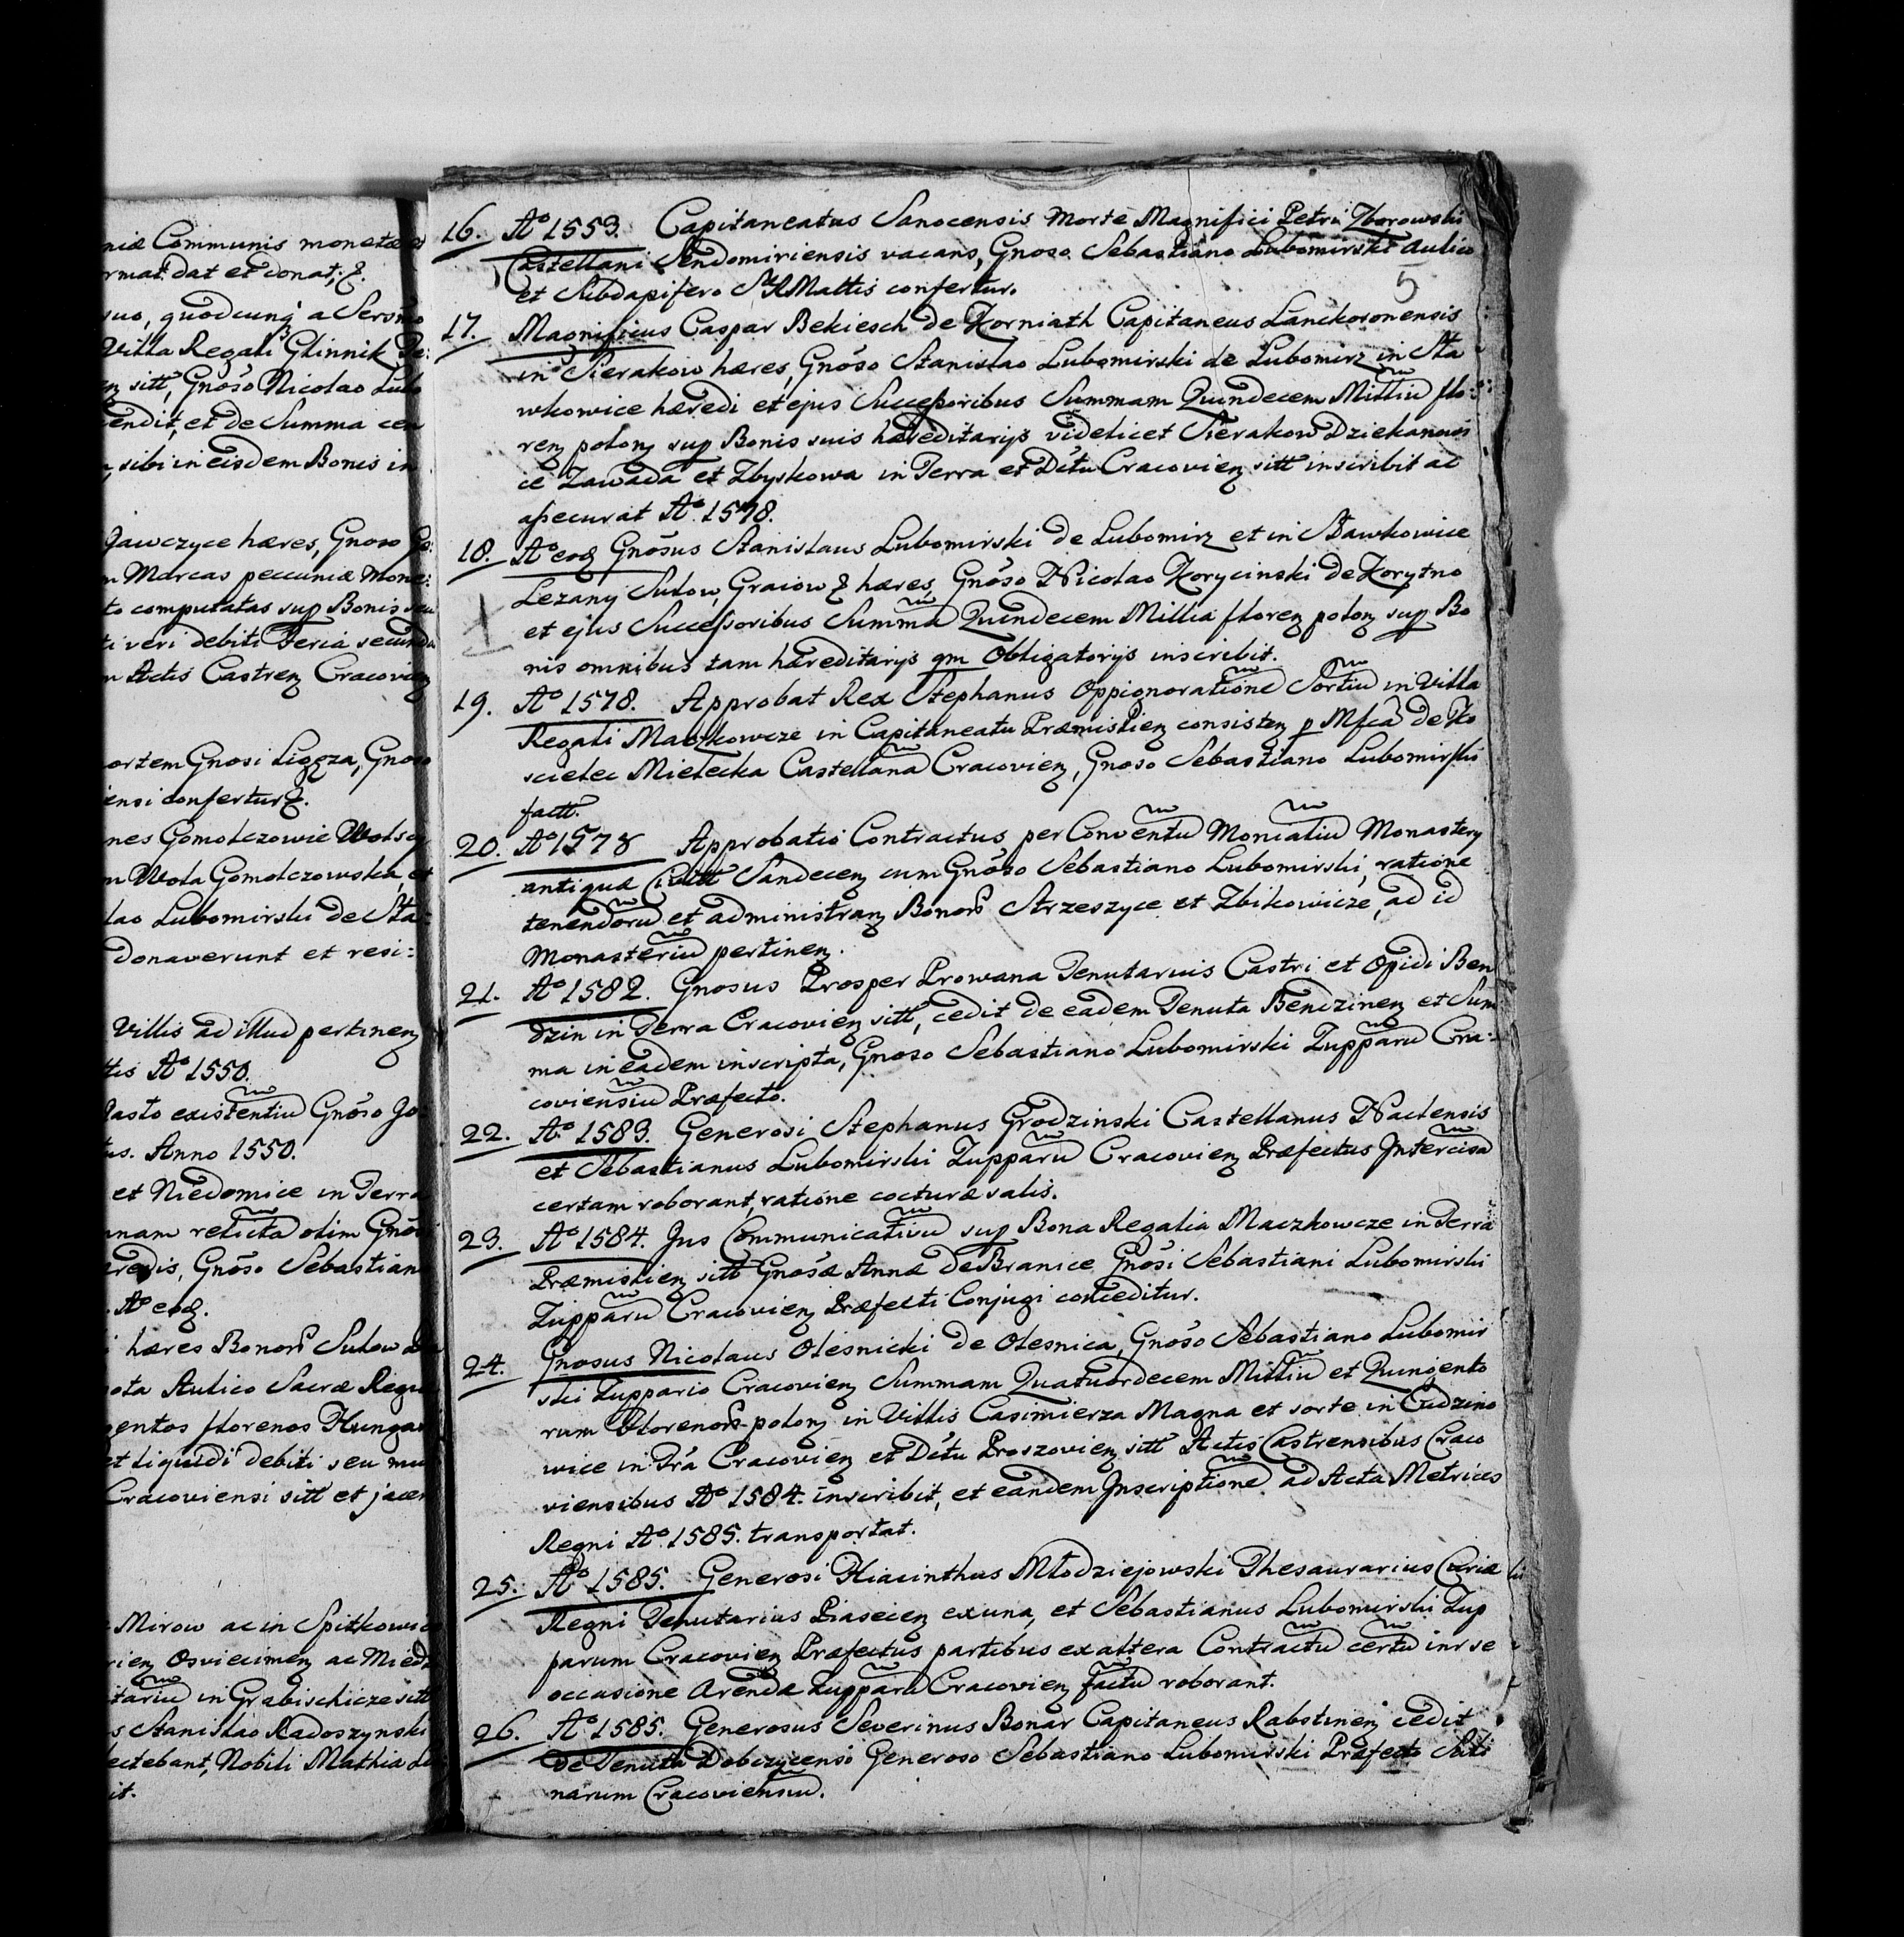 niæ Communis monetæ et
rmat. dat et donat, &.
suo, quodcunq a Sersmo
Villa Regali Glinnik De:
sitt, Gnoso Nicolao Lubo
endit, et de Summa cen
sibi in eisdem Bonis in
Jawczyce hæres, Gnoso Ge:
m Marcas peccuniæ Mone:
to computatas sup Bonis seu
ti veri debiti Feria secunda
n Actis Castren Cracovien
ortem Gnosi Ligęza, Gnoso
ensi confertur &.
nes Gomolczowie Wolscy
m Wola Gomolczowska, et
lao Lubomirski de Sta:
donaverunt et resi:
Villis ad illud pertinen
tis Aº 1550.
Jasto existentiu Gnoso Jo
us. Anno 1550.
et Niedomice in Terra
nnam relicta olim Gnosi
redis, Gnoso Sebastian
Aº eod.
hæres Bonor Sulow
ota Aulico Sacræ Regiæ
gentos florenos Hungar
et liquidi debiti seu mu
Cracoviensi sitt et jacen
Mirow ac in Spitkowice
rien Osviecimen ac
tariu in Grabischicze sitt
s Stanislao Radoszynski
ectebant, Nobili Mathia
it.
5
16. Aº 1553. Capitaneatus Sanocensis Morte Magnifici Petri Zborowski
Castellani Sendomiriensis vacans, Gnoso Sebastiano Lubomirski Aulico
et Subdapifero S R Mattis confertur.
17. Magnificus Caspar Bekiesch de Korniath Capitaneus Lanckoronensis
in Sierakow hæres, Gnoso Stanislao Lubomirski de Lubomirz in Sta
wkowice hæredi et ejus Successoribus Summam Quindecem Milliu flo:
ren polon sup Bonis suis hæreditarijs videlicet Sierakow Dziekanow
ice Zawada et Zbyskowa in Terra et Dstu Cracovien sitt inscribit ac
assecurat Aº 1578.
18. Aº eod Gnosus Stanislaus Lubomirski de Lubomirz et in Stawkowice
Lezany Sulow, Graiow & hæres, Gnoso Nicolao Korycinski de Korytno
et ejus Successoribus Summa Quindecem Millia floren polon sup Bo
nis omnibus tam hæreditarijs qm Obligatorijs inscribit.
19. Aº 1578. Approbat Rex Stephanus Oppignoratione Sortiu in Villa
Regali Maczkowcze in Capitaneatu Præmislien consisten p Mfca de Ko
scielec Mielecka Castellana Cracovien, Gnoso Sebastiano Lubomirski
factt.
20. Aº 1578 Approbatio Contractus per Conventu Monialiu Monastery
antiquæ Civitt Sandecen cum Gnoso Sebastiano Lubomirski, ratione
tenendoru et administran Bonor Strzeszyce et Zbikowicze, ad id
Monasteriu pertinen.
21. Aº 1582. Gnosus Prosper Prowana Tenutarius Castri et Opidi Ben
dzin in Terra Cracovien sitt, cedit de eadem Tenuta Bendzinen et Sum
ma in eadem inscripta, Gnoso Sebastiano Lubomirski Zupparu Cra:
coviensiu Præfecto.
22. Aº 1583. Generosi Stephanus Grodzinski Castellanus Naclensis
et Sebastianus Lubomirski Zupparu Cracovien Præfectus Intercisa
certam roborant, ratione cocturæ salis.
23. Aº 1584. Jus Communicativu sup Bona Regalia Maczkowcze in Terra
Præmislien sitt Gnosæ Annæ de Branice Gnosi Sebastiani Lubomirski
Zupparu Cracovien Præfecti Conjugi conceditur.
24. Gnosus Nicolaus Olesnicki de Olesnica, Gnoso Sebastiano Lubomir
ski Zuppario Cracovien Summam Quatuordecem Milliu et Quingento
rum Florenor polon in Villis Casimierza Magna et sorte in Cudzino
wice in Tra Cracovien et Dstu Proszovien sitt Actis Castrensibus Craco
viensibus Aº 1584. inscribit, et eandem Inscriptione ad Acta Metrices
Regni Aº 1585. transportat.
25. Aº 1585. Generosi Hiacinthus Młodziejowski Thesaurarius Curiæ
Regni Tenutarius Piasecen ex una, et Sebastianus Lubomirski Zup
parum Cracovien Præfectus partibus ex altera Contractu certu inr se
occasione Arendæ Zupparu Cracovien factu roborant.
26. Aº 1585. Generosus Severinus Bonar Capitaneus Rabstinen cedit
de Tenuta Dobczycensi Generoso Sebastiano Lubomirski Præfecto Sali
narum Cracoviensiu.